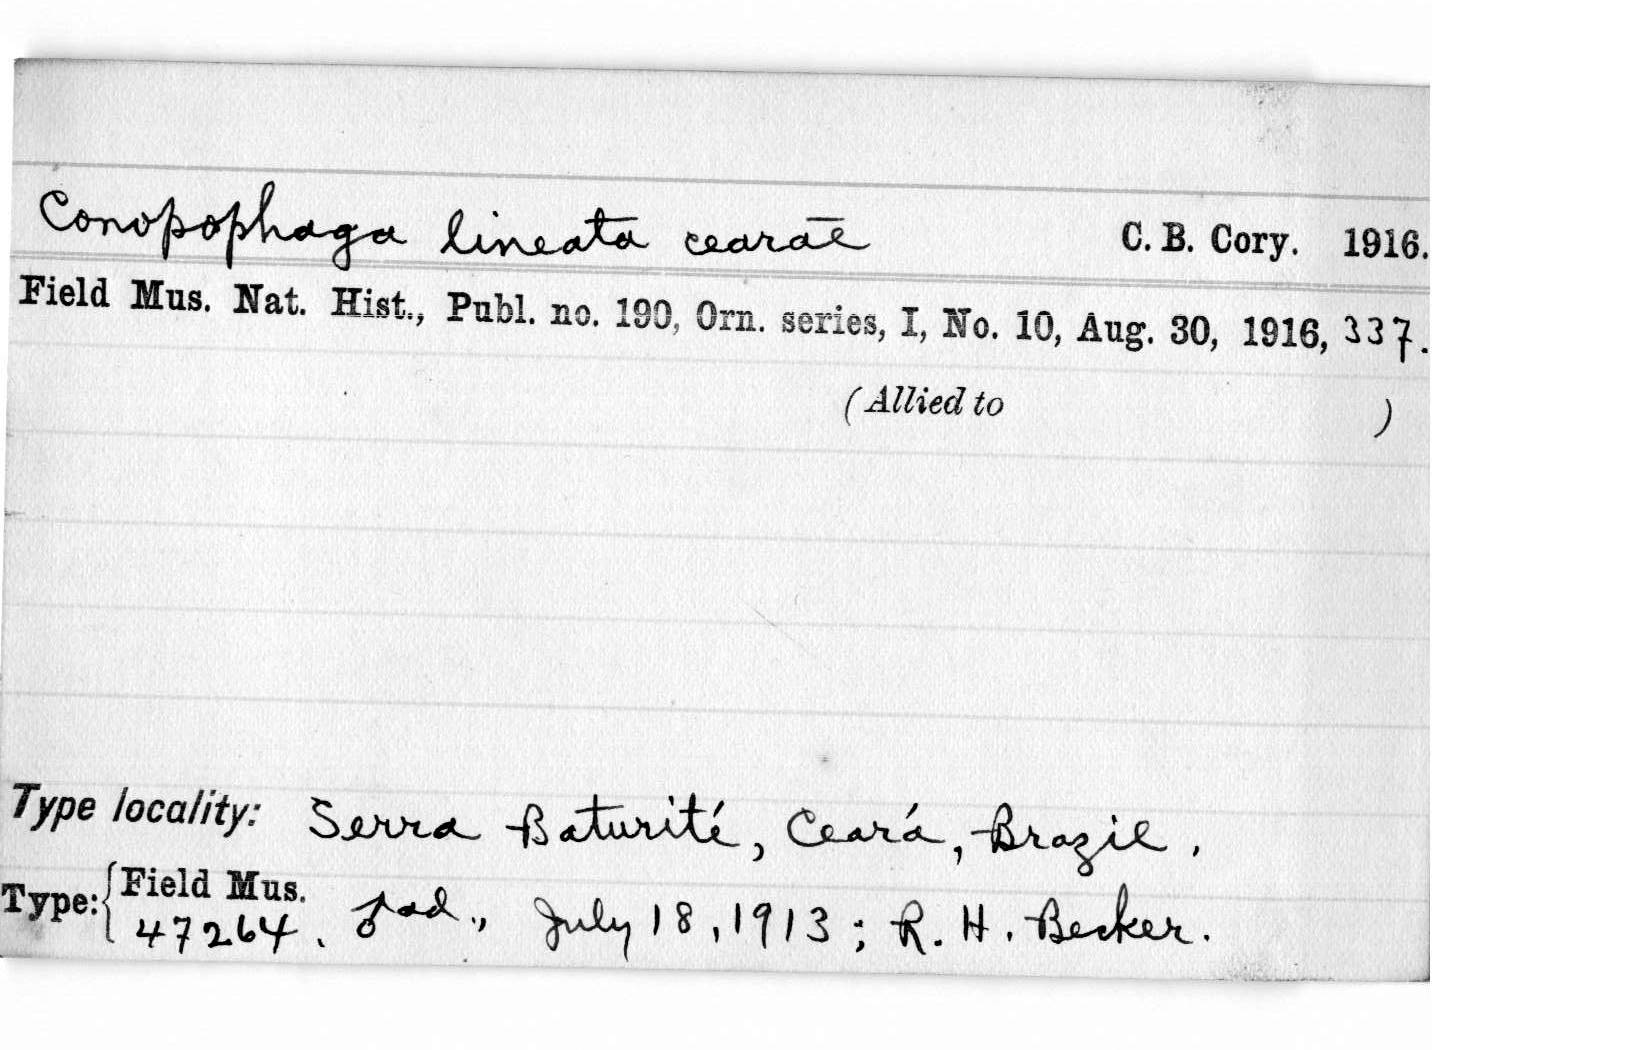 Conopophaga lineata cearae C. B. Cory. 1916.
Field Mus. Nat. Hist., Publ. no. 190, Orn. series, I, No. 10, Aug. 30, 1916, 337.
(Allied to )
Type locality: Serra Baturité, Ceará, Brazil.
Type: { Field Mus. 47264. ♂ ad., July 18, 1913; R. H. Becker.